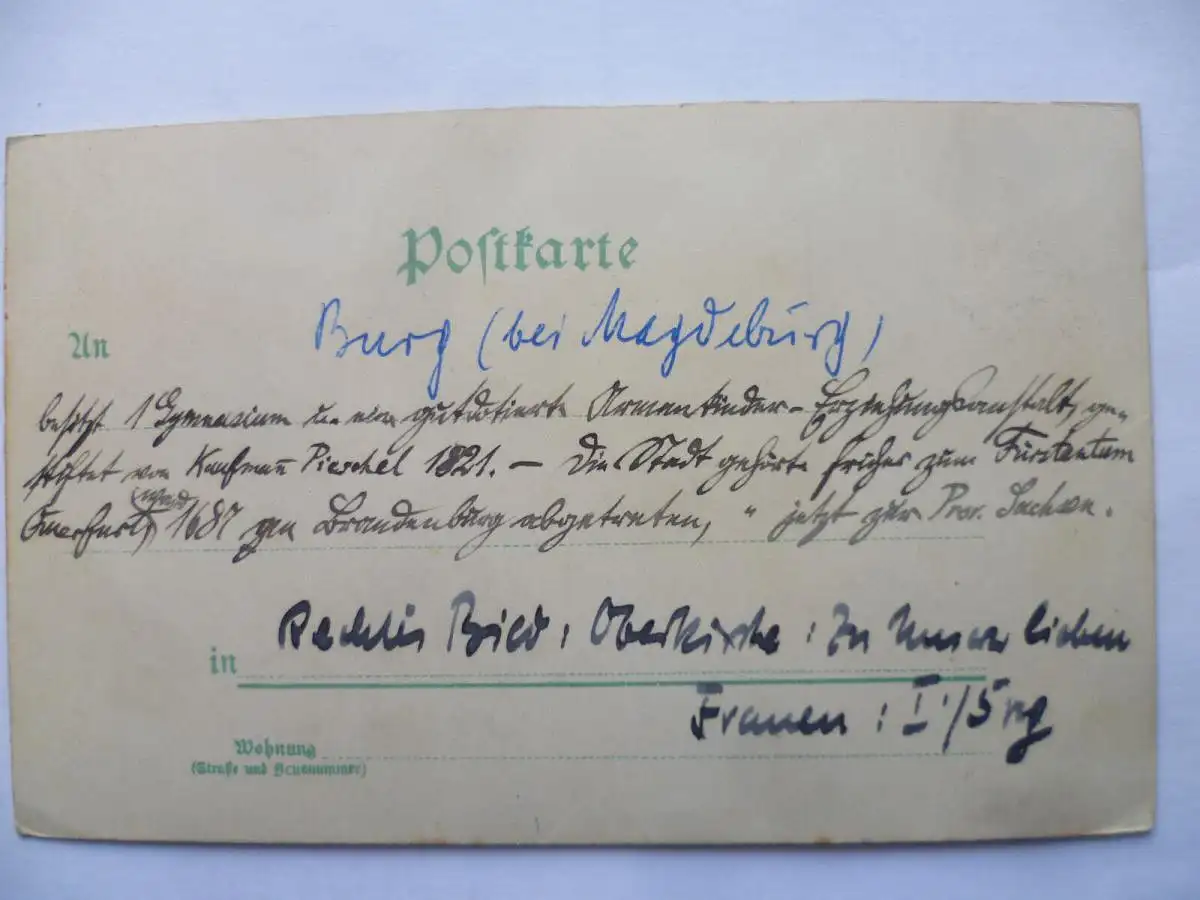 Postkarte
Burg (bei Magdeburg)
An
besitzt 1 Gymnasium u. eine gutdotierte Armenkinder-Erziehungsanstalt, ge-
stiftet von Kaufmann Pieschel 1821. – Die Stadt gehörte früher zum Fürstentum
Querfurt, 1687 an Brandenburg abgetreten, " jetzt zur Prov. Sachsen.
Rechtes Bild: Oberkirche: Zu Unserer lieben
in
Frauen: I:/5
Wohnung
(Straße und Hausnummer)